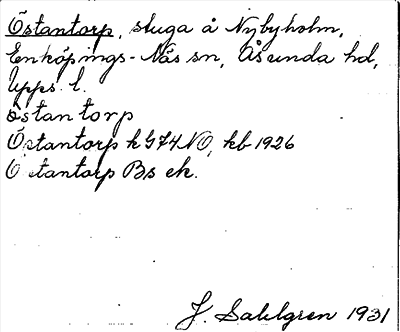 Östantorp, stuga å Nybyholm,
Enköpings-Näs sn, Åsunda hd,
Upps. l.
östantorp
Östantorp k G74 NO, kb 1926
Östantorp Bs ek.
J. Sahlgren 1931